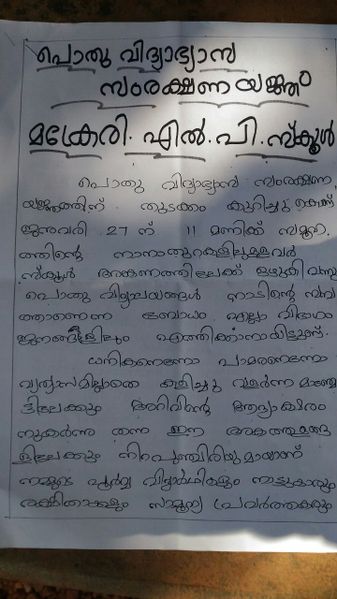 പൊതു വിദ്യാഭ്യാസ
സംരക്ഷണ യജ്ഞം
മക്രേരി. എൽ. പി. സ്കൂൾ
പൊതു വിദ്യാഭ്യാസ സംരക്ഷണ
യജ്ഞത്തിന് തുടക്കം കുറിച്ചു കൊണ്ട്
ജനുവരി 27 ന് 11 മണിക്ക് സമൂഹ
ത്തിന്റെ നാനാതുറകളിലുള്ളവർ
സ്കൂൾ അങ്കണത്തിലേക്ക് ഒഴുകി വന്നു
പൊതു വിദ്യാലയങ്ങൾ നാടിന്റെ സമ്പ
ത്താണെന്ന ബോധം എല്ലാ വിഭാഗം
ജനങ്ങളിലും എത്തിക്കാനായിട്ടുണ്ട്.
ധനികനെന്നോ പാമരനെന്നോ
വ്യത്യാസമില്ലാതെ കളിച്ചു വളർന്ന മണ്ണി
ലേക്കും അറിവിന്റെ ആദ്യാക്ഷരം
നുകർന്നു തന്ന ഈ അകത്തള
ളിലേക്കും നിറപുഞ്ചിരിയുമായാണ്
നമ്മുടെ പൂർവ്വ വിദ്യാർഥികളും നാട്ടുകാരും
രക്ഷിതാക്കളും സാമൂഹ്യ പ്രവർത്തകരും